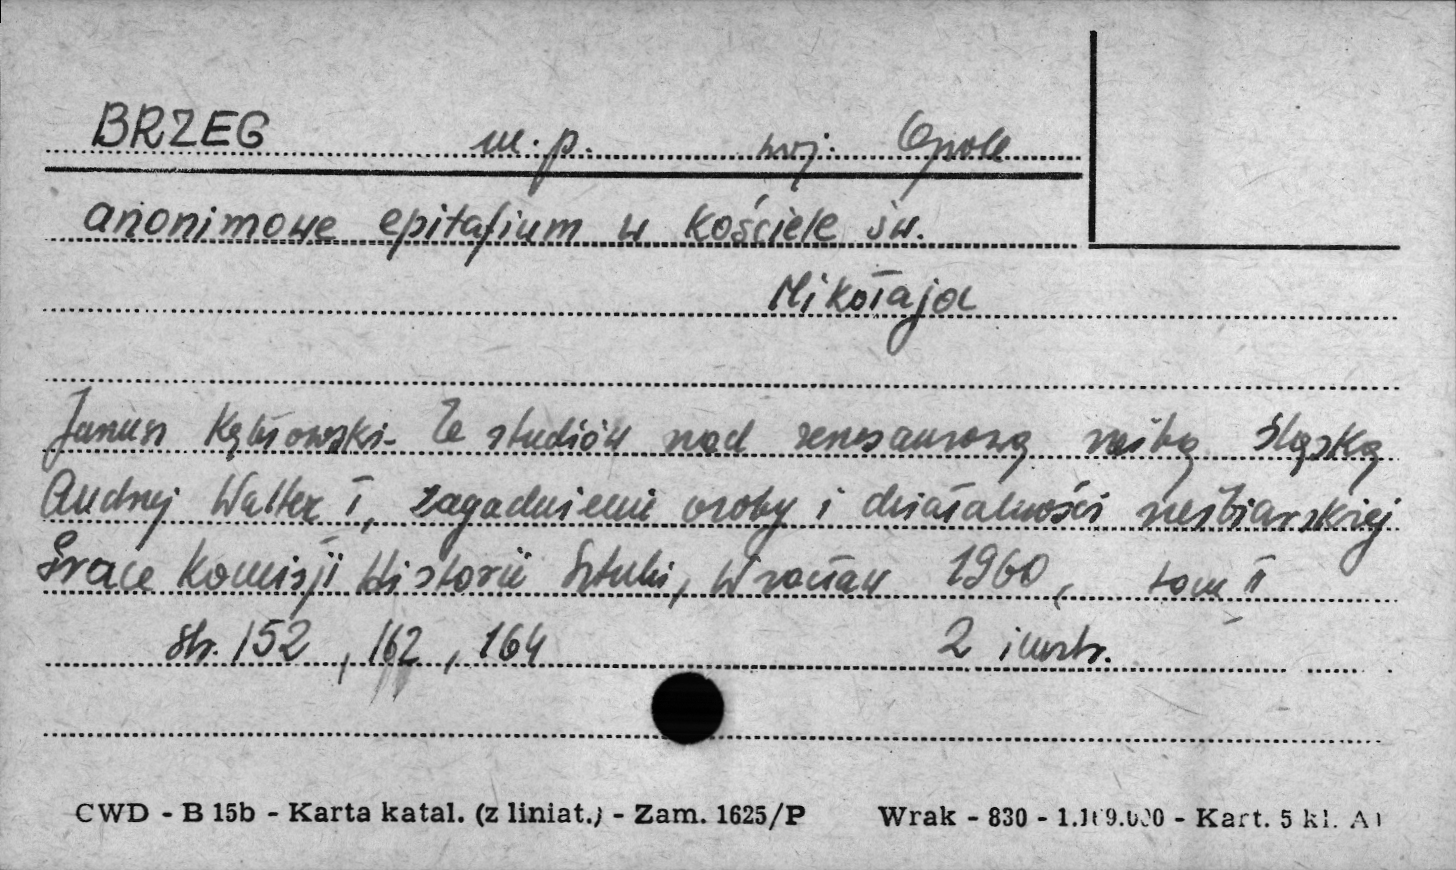 BRZEG m.p. woj. Opole
anonimowe epitafium w kościele św.
Mikołaja
Janusz Kębłowski - Ze studiów nad renesansową rzeźbą śląską
Andrzej Walter I, zagadnienie osoby i działalności rzeźbiarskiej
Prace Komisji Historii Sztuki, Wrocław 1960, tom II
str. 152, 162, 164 2 ilustr.
CWD - B 15b - Karta katal. (z liniat.) - Zam. 1625/P Wrak - 830 - - Kart. 5 kl.